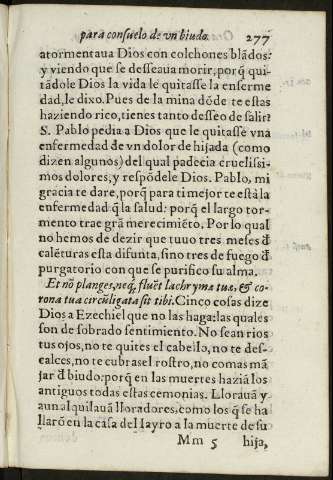 para consuelo de vn biudo. 277
atormentaua Dios con colchones blãdos:
y viendo que se desseaua morir, porq̃ qui-
tãdole Dios la vida le quitasse la enferme
dad, le dixo. Pues de la mina dõde te estas
haziendo rico, tienes tanto desseo de salir?
S. Pablo pedia a Dios que le quitasse vna
enfermedad de vn dolor de hijada (como
dizen algunos) del qual padecia cruelissi-
mos dolores, y respõdele Dios. Pablo, mi
gracia te dare, porq̃ para ti mejor te està la
enfermedad q̃ la salud: porq̃ el largo tor-
mento trae grã merecimiẽto. Por lo qual
no hemos de dezir que tuuo tres meses d̃
calẽturas esta difunta, sino tres de fuego d̃
purgatorio con que se purifico su alma.
Et nõ planges, neq; fluẽt lachryma tua, & co-
rona tua circũligata sit tibi. Cinco cosas dize
Dios a Ezechiel que no las haga: las quales
son de sobrado sentimiento. No sean rios
tus ojos, no te quites el cabello, no te des-
calces, no te cubras el rostro, no comas mã
jar d̃ biudo: porq̃ en las muertes haziã los
antiguos todas estas cemonias. Llorauã y
aun alquilauã lloradores, como los q̃ se ha
llarõ en la casa del Iayro a la muerte de su
Mm 5 hija,